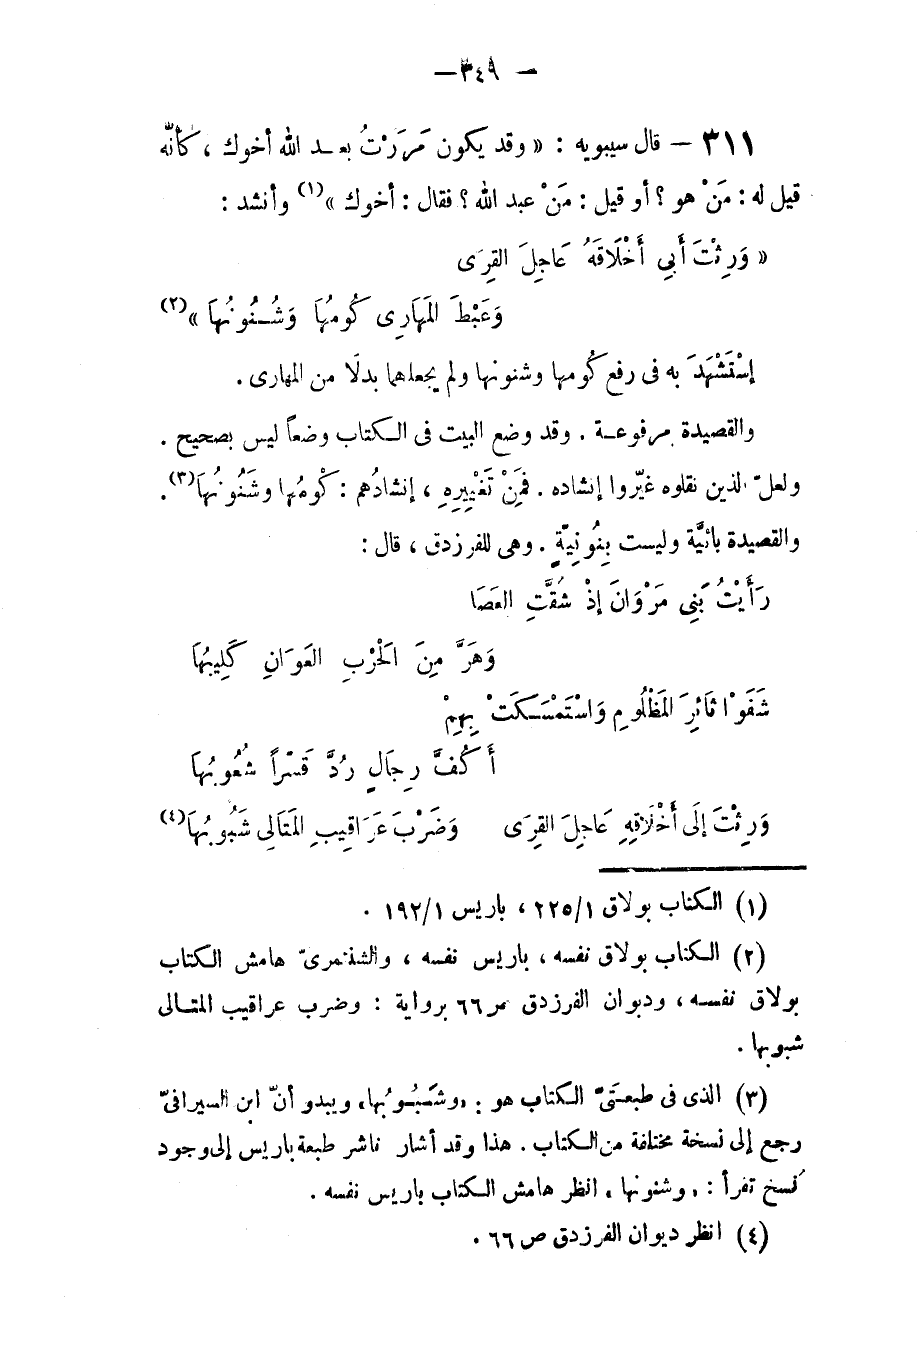 — ٣٤٩ —
٣١١ — قال سيبويه : « وقد يكون مَررَرْتُ بعـد الله أخوك ، كأنّه
قيل له : مَنْ هو ؟ أو قيل : مَنْ عبد الله ؟ فقال : أخوك »(١) وأنشد :
« وَرِثْتَ أَبِي أَخْلَاقَهُ عَاجِلَ القِرَى
وَعَبْطَ المَهَارِى كُومُهَا وَشُـنُونُهَا »(٢)
إسْتَشْهَدَ به فى رفع كُومها وشنونها ولم يجعلهما بدلًا من المهارى .
والقصيدة مرفوعـة . وقد وضع البيت فى الـكتاب وضعاً ليس بصحيح .
ولعلّ الذين نقلوه غيّروا إنشاده . فَمِنْ تَغْيِيرِهِ ، إنشادُهم : كُومُها وشَنُونُهَا(٣).
والقصيدة بائيَّة وليست بِنُونِيَّةٍ . وهى للفرزدق ، قال :
رَأَيْتُ بَنِي مَرْوَانَ إذْ شُقَّتِ العَصَا
وَهَرَّ مِنَ الحَرْبِ العَوَانِ كَلِيبُهَا
شَفَوْا ثَائِرَ المَظْلُومِ وَاسْتَمْسَـكَتْ بِهِمْ
أَكُفُّ رِجَالٍ رُدَّ قَسْراً شُعُوبُهَا
وَرِثْتَ إلَى أَخْلَاقِهِ عَاجِلَ القِرَى وَضَرْبَ عَرَاقِيبِ المَتَالِى شَبُوبُهَا(٤)
(١) الـكتاب بولاق ٢٢٥/١ ، باريس ١٩٢/١ .
(٢) الـكتاب بولاق نفسه ، باريس نفسه ، والشنتمرىّ هامش الـكتاب
بولاق نفسـه ، وديوان الفرزدق ص ٦٦ برواية : وضرب عراقيب المتـالى
شبوبها .
(٣) الذى فى طبعـتَىّ الـكتاب هو : ,وشَـبُـوبُها, ويبدو أنّ ابن السيرافىّ
رجع إلى نسخة مختلفة من الـكتاب . هذا وقد أشار ناشر طبعة باريس إلى وجود
نُسخ تقرأ : ,وشنونها, انظر هامش الـكتاب باريس نفسه .
(٤) انظر ديوان الفرزدق ص ٦٦ .